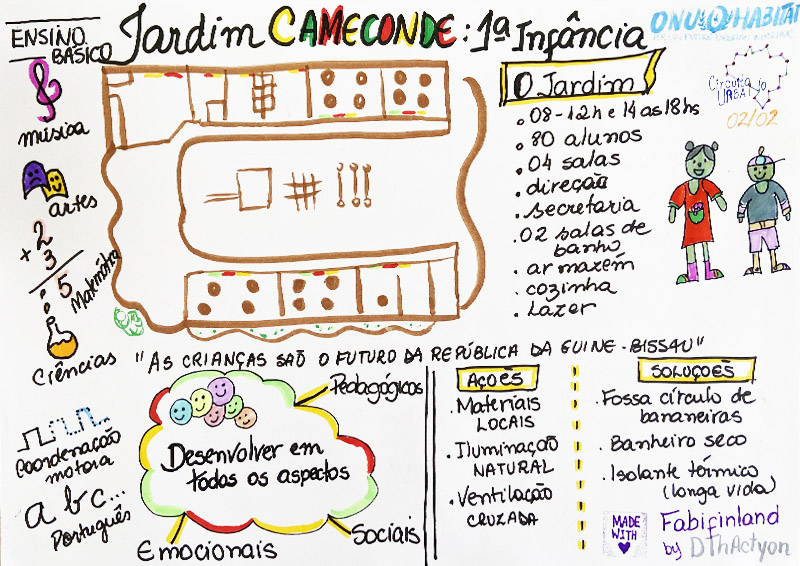 ENSINO BÁSICO
Jardim CAMECONDE: 1ª Infância
ONU HABITAT
música
artes
2
+ 3
5
Matemática
Ciências
Coordenação
motora
a b c...
Português
O Jardim
. 08-12h e 14 as 18hs
. 80 alunos
. 04 salas
. direção
. secretaria
. 02 salas de
banho
. armazém
. cozinha
. Lazer
02/02
"AS CRIANÇAS SAÕ O FUTURO DA REPÚBLICA DA GUINE-BISSAU"
Desenvolver em
todos os aspectos
Pedagógicos
Emocionais
Sociais
AÇOËS
. Materiais
LOCAIS
. Iluminação
NATURAL
. Ventilação
CRUZADA
SOLUÇOËS
. Fossa círculo de
bananeiras
. Banheiro seco
. Isolante térmico
(longa vida)
MADE
WITH
Fabifinland
by DThActyon